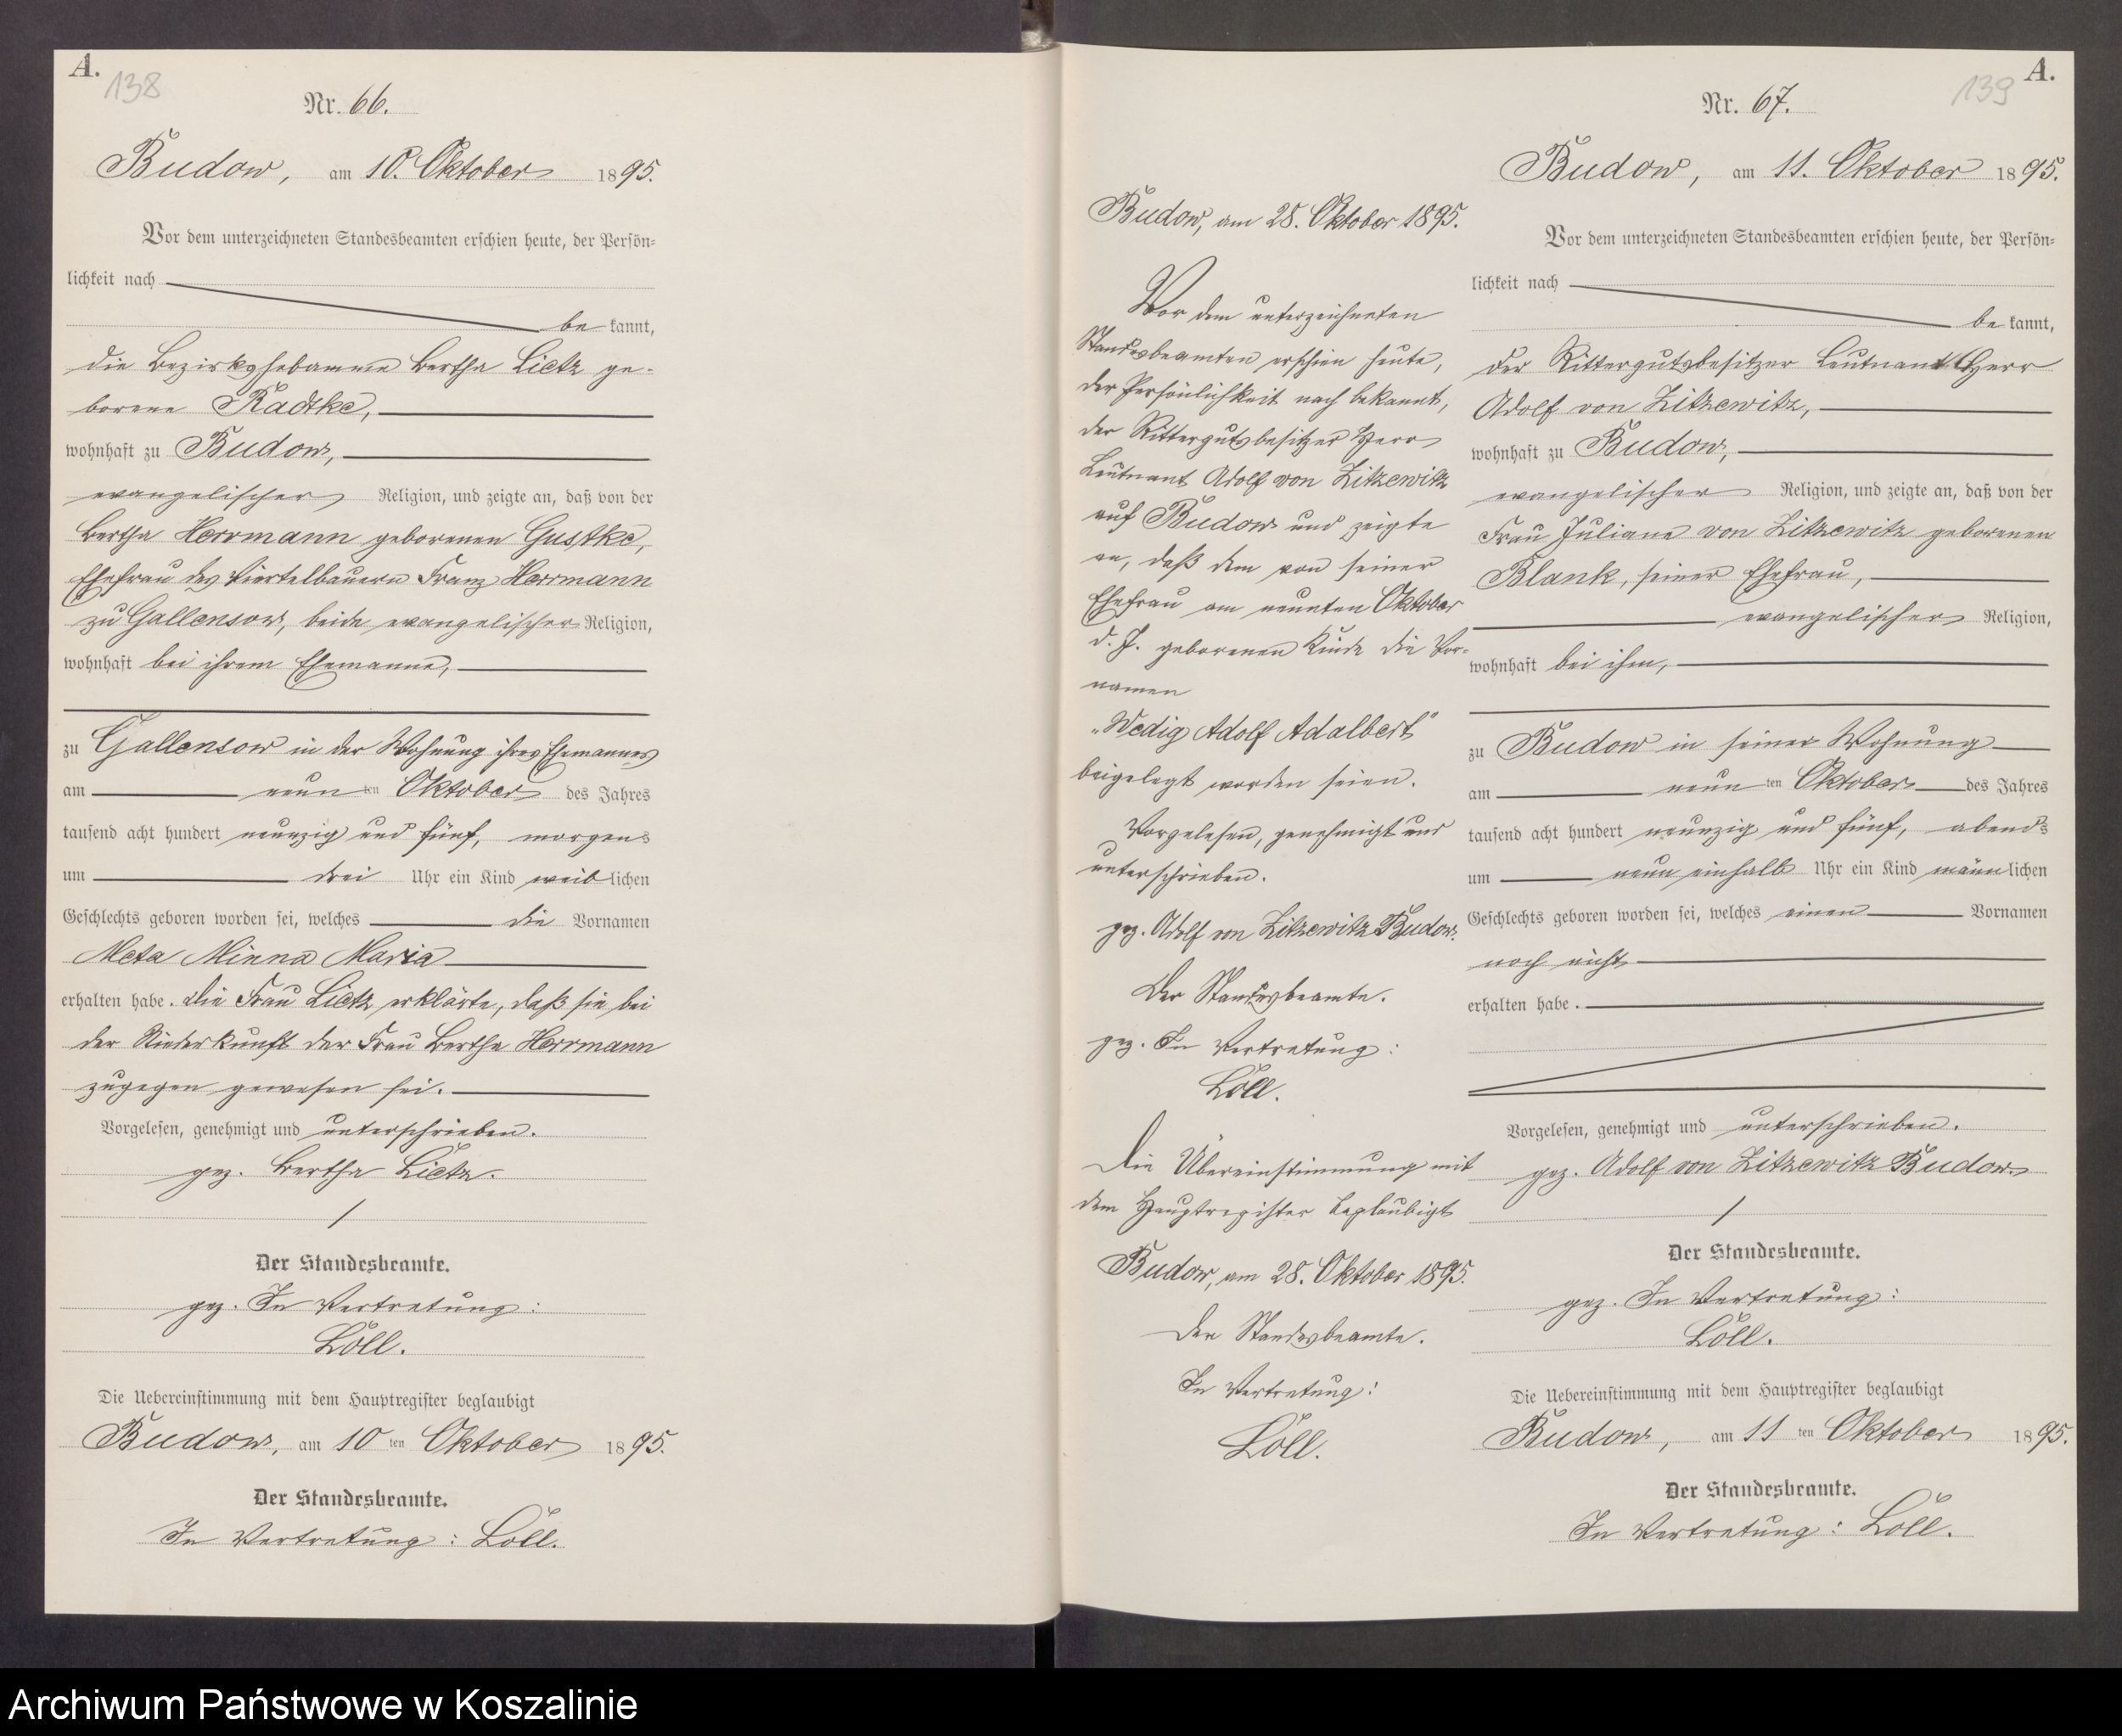 A.
138
Nr. 66.
Budow, am 10. Oktober 1895.
Vor dem unterzeichneten Standesbeamten erschien heute, der Persön-
lichkeit nach
be kannt,
die Bezirkshebamme Bertha Lietz ge-
borene Radtke,
wohnhaft zu Budow,
evangelischer Religion, und zeigte an, daß von der
Bertha Herrmann geborenen Gustke,
Ehefrau des Viertelbauern Franz Herrmann
zu Gallensow, beide evangelischer Religion,
wohnhaft bei ihrem Ehemanne,
zu Gallensow in der Wohnung ihres Ehemannes
am neun ten Oktober des Jahres
tausend acht hundert neunzig und fünf, morgens
um drei Uhr ein Kind weiblichen
Geschlechts geboren worden sei, welches die Vornamen
Meta Minna Maria
erhalten habe. Die Frau Lietz erklärte, daß sie bei
der Niederkunft der Frau Bertha Herrmann
zugegen gewesen sei.
Vorgelesen, genehmigt und unterschrieben.
gez. Bertha Lietz.
Der Standesbeamte.
gez. In Vertretung:
Löll.
Die Uebereinstimmung mit dem Hauptregister beglaubigt
Budow, am 10 ten Oktober 1895.
Der Standesbeamte.
In Vertretung: Löll.
Budow, am 28. Oktober 1895.
Vor dem unterzeichneten
Standesbeamten erschien heute,
der Persönlichkeit nach bekannt,
der Rittergutsbesitzer Herr
Leutnant Adolf von Zitzewitz
auf Budow und zeigte
an, daß dem von seiner
Ehefrau am neunten Oktober
d. J. geborenen Kinde die Vor-
namen
„Wedig Adolf Adalbert"
beigelegt worden seien.
Vorgelesen, genehmigt und
unterschrieben.
gez. Adolf von Zitzewitz Budow.
Der Standesbeamte.
gez. In Vertretung:
Löll.
Die Übereinstimmung mit
dem Hauptregister beglaubigt
Budow, am 28. Oktober 1895.
Der Standesbeamte.
In Vertretung:
Löll.
A.
139
Nr. 67.
Budow, am 11. Oktober 1895.
Vor dem unterzeichneten Standesbeamten erschien heute, der Persön-
lichkeit nach
be kannt,
der Rittergutsbesitzer Leutnant Herr
Adolf von Zitzewitz,
wohnhaft zu Budow,
evangelischer Religion, und zeigte an, daß von der
Frau Juliane von Zitzewitz geborenen
Blank, seiner Ehefrau,
evangelischer Religion,
wohnhaft bei ihm,
zu Budow in seiner Wohnung
am neun ten Oktober des Jahres
tausend acht hundert neunzig und fünf, abends
um neun einhalb Uhr ein Kind männlichen
Geschlechts geboren worden sei, welches einen Vornamen
noch nicht
erhalten habe.
Vorgelesen, genehmigt und unterschrieben.
gez. Adolf von Zitzewitz Budow.
Der Standesbeamte.
gez. In Vertretung:
Löll.
Die Uebereinstimmung mit dem Hauptregister beglaubigt
Budow, am 11 ten Oktober 1895.
Der Standesbeamte.
In Vertretung: Löll.
Archiwum Państwowe w Koszalinie